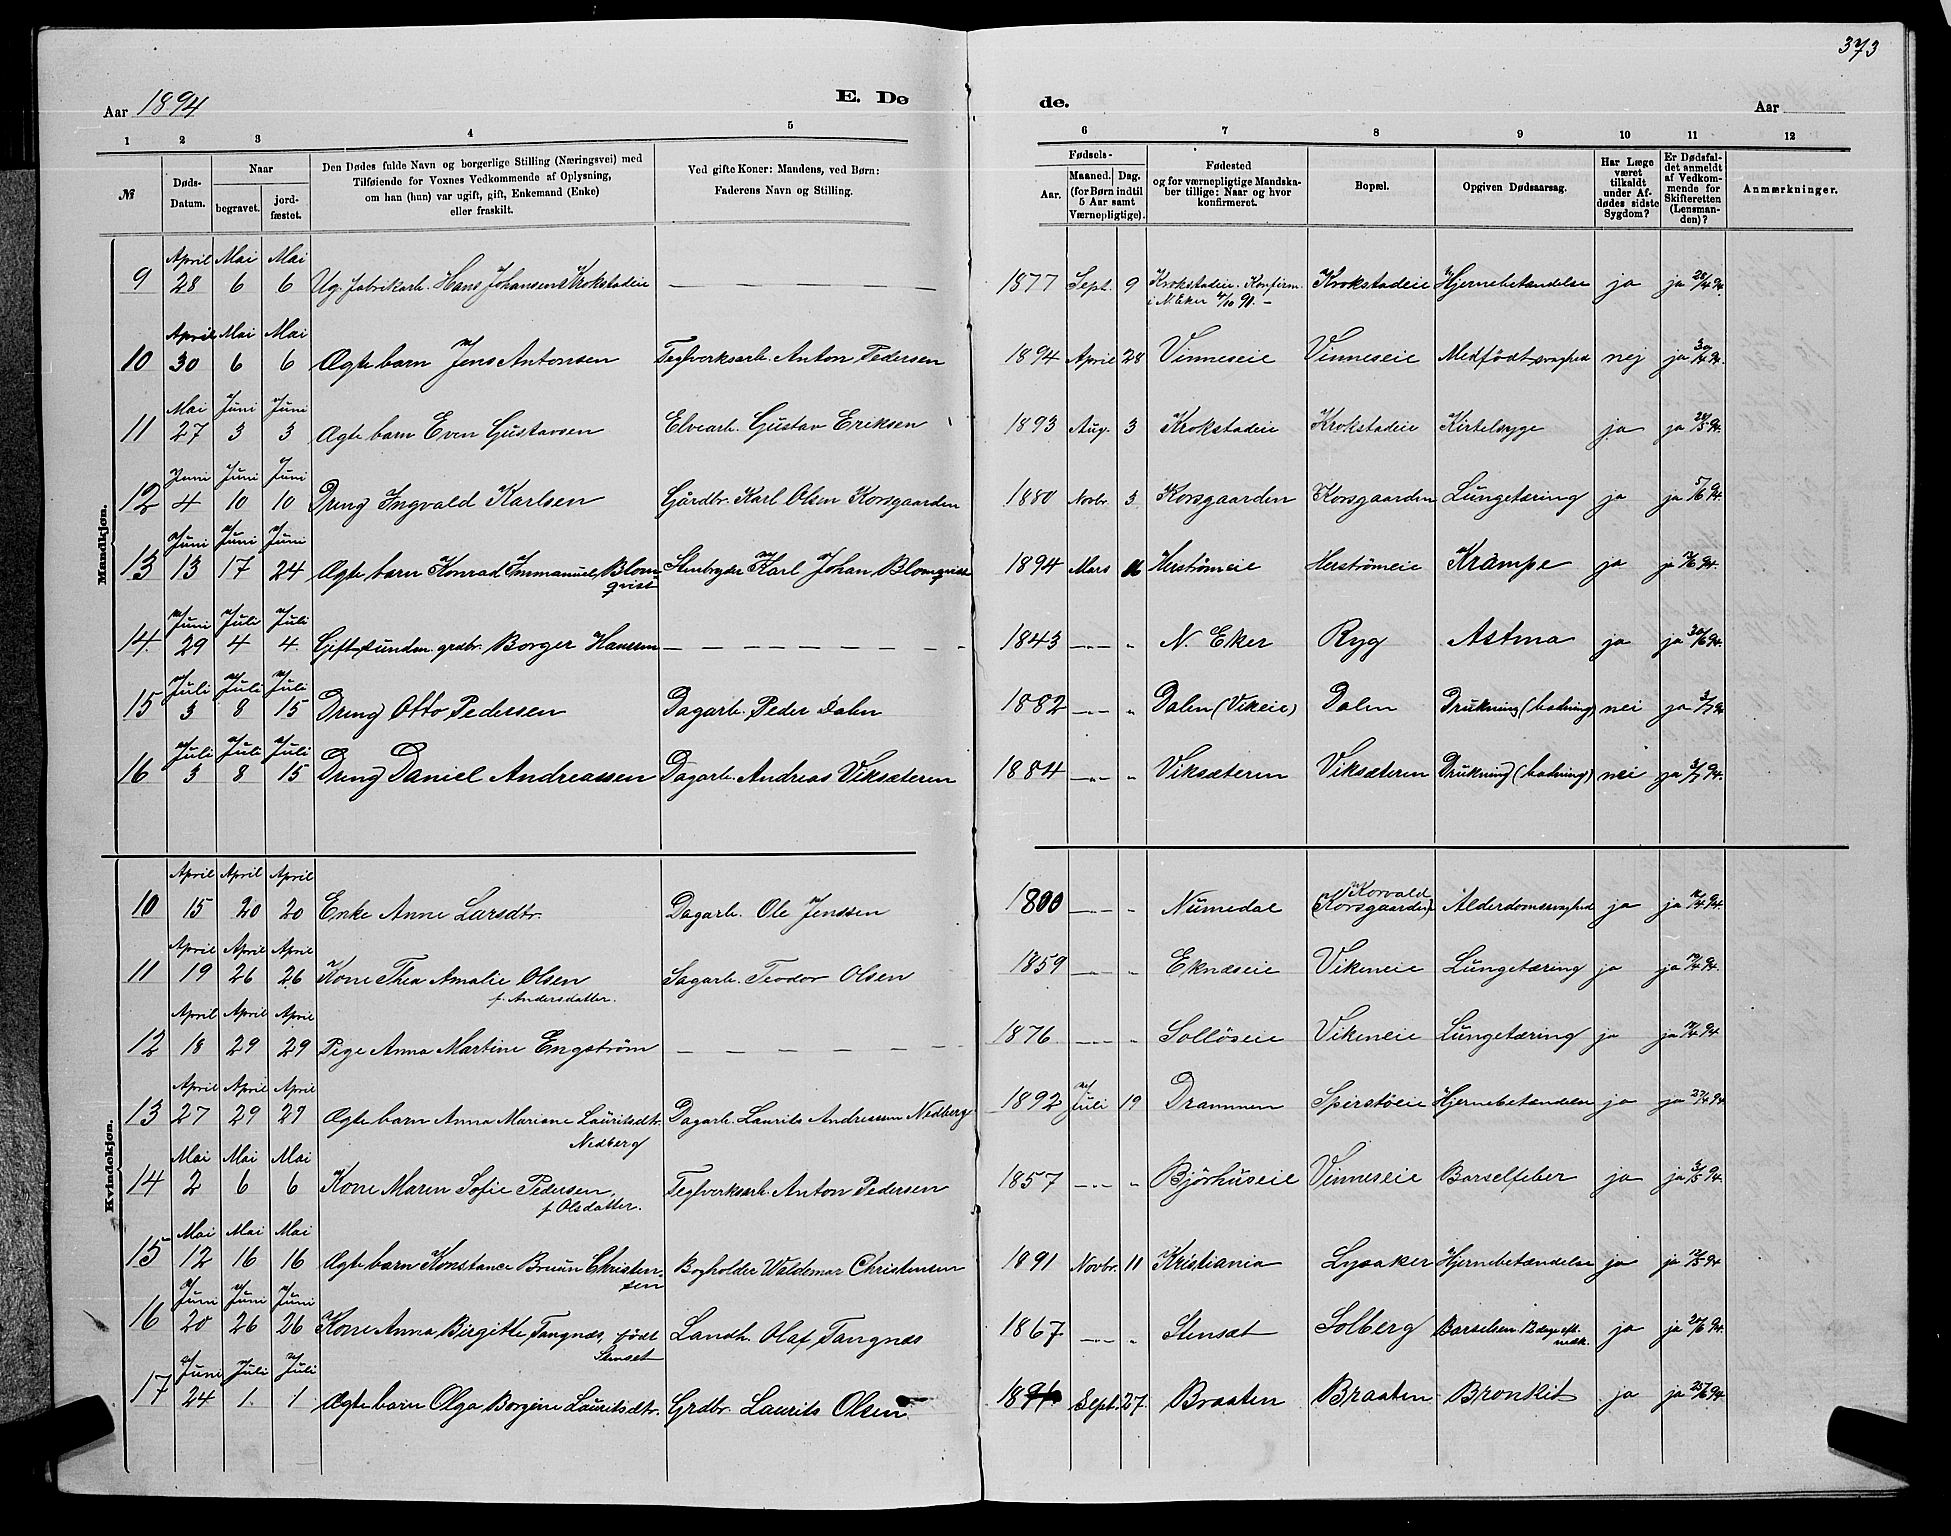 373
Aar 1894
E. Dø
de.
Aar
1 2 3 4 5 6 7 8 9 10 11 12
№
Døds-Datum.
Naar
begravet.
jordfæstet.
Den Dødes fulde Navn og borgerlige Stilling (Næringsvei) med
Tilføiende for Voxnes Vedkommende af Oplysning,
om han (hun) var ugift, gift, Enkemand (Enke)
eller fraskilt.
Ved gifte Koner: Mandens, ved Børn:
Faderens Navn og Stilling.
Fødsels-
Aar.
Maaned. Dag.
(for Børn indtil
5 Aar samt
Værnepligtige).
Fødested
og for værnepligtige Mandska-
ber tillige: Naar og hvor
konfirmeret.
Bopæl.
Opgiven Dødsaarsag.
Har Læge
været
tilkaldt
under Af-
dødes sidste
Sygdom?
Er Dødsfal-
det anmeldt
af Vedkom-
mende for
Skifteretten
(Lensman-
den)?
Anmærkninger.
Mandkjøn.
April Mai Mai
9 28 6 6 Ug. fabrikarb. Hans Johansen Krokstadeie 1877 Sept. 9 Krokstadeie. Konfirm. Krokstadeie Hjernebetændelse ja ja 28/4 94.
i N. Eker 4/10 91.
April Mai Mai
10 30 6 6 Ægte barn Jens Antonsen Teglverksarb. Anton Pedersen 1894 April 28 Vinneseie Vinneseie Medfödt svaghed nej ja 30/4 94.
Mai Juni Juni
11 27 3 3 Ægte barn Even Gustavsen Elvearb. Gustav Eriksen 1893 Aug. 3 Krokstadeie Krokstadeie Kirtelsyge ja ja 28/5 94.
Juni Juni Juni
12 4 10 10 Dreng Ingvald Karlsen Gårdbr. Karl Olsen Korsgaarden 1880 Novbr. 3 Korsgaarden Korsgaarden Lungetæring ja ja 5/6 94.
Juni Juni Juni
13 13 17 24 Ægte barn Konrad Immanuel Blom- Stenbryder Karl Johan Blomqvist 1894 Mars Herströmeie Herströmeie Krampe ja ja
qvist
Juni Juli Juli
14. 29 4 4. Gift grdbr. Borger Hansen 1843 N. Eker Ryg Astma ja ja 30/6 94.
Juli Juli Juli
15 3 8 15 Dreng Otto Pedersen Dagarb. Peder Dalen 1882 Dalen (Vikeie) Dalen Drukning (badning) nei ja 3/7 94
Juli Juli Juli
16 3 8 15 Dreng Daniel Andreassen Dagarb. Andreas Viksæteren 1884 Viksæteren Viksæteren Drukning (badning) nei ja 3/7 94.
Kvindekjøn.
April April April
10 15 20 20 Enke Anne Larsdtr. Dagarb. Ole Jenssen 1800 Numedal Korvald (Korsgaarden) Alderdomssvaghed ja ja
April April April
11 19 26 26 Kone Thea Amalie Olsen Sagarb. Teodor Olsen 1859 Eknæseie Vikeneie Lungetæring ja ja
f. Andersdatter.
April April April
12 18 29 29 Pige Anna Martine Engström 1876 Sollöseie Vikeneie Lungetæring ja ja
April April April
13 27 29 29 Ægte barn Anna Mariane Lauritsdtr. Dagarb. Laurits Andreassen Nedberg 1892 Juli 19 Drammen Spirstöeie Hjernebetændelse ja ja 27/4 94
Nedberg
Mai Mai Mai
14 2 6 6 Kone Maren Sofie Pedersen Teglverksarb. Anton Pedersen 1857 Bjórhuseie Vinneseie Barselfeber ja ja 3/5 94.
f. Olsdatter.
Mai Mai Mai
15 12 16 16 Ægte barn Konstance Bruun Christen- Bogholder Waldemar Christensen 1891 Novbr. 11 Kristiania Lysaker Hjernebetændelse ja ja 12/5 94
sen
Juni Juni Juni
16 20 26 26 Kone Anna Birgitte Tangnæs född Landh. Olaf Tangnæs 1867 Stensæt Solberg Barselsen. 12 dage eft. ja ja 20/6 94.
Stenset nedk.
Juni Juli Juli
17 24 1. 1 Ægte barn Olga Borgine Lauritsdtr. Grdbr. Laurits Olsen. Sept. 27 Braaten Braaten Bronkit ja ja 25/6 94.